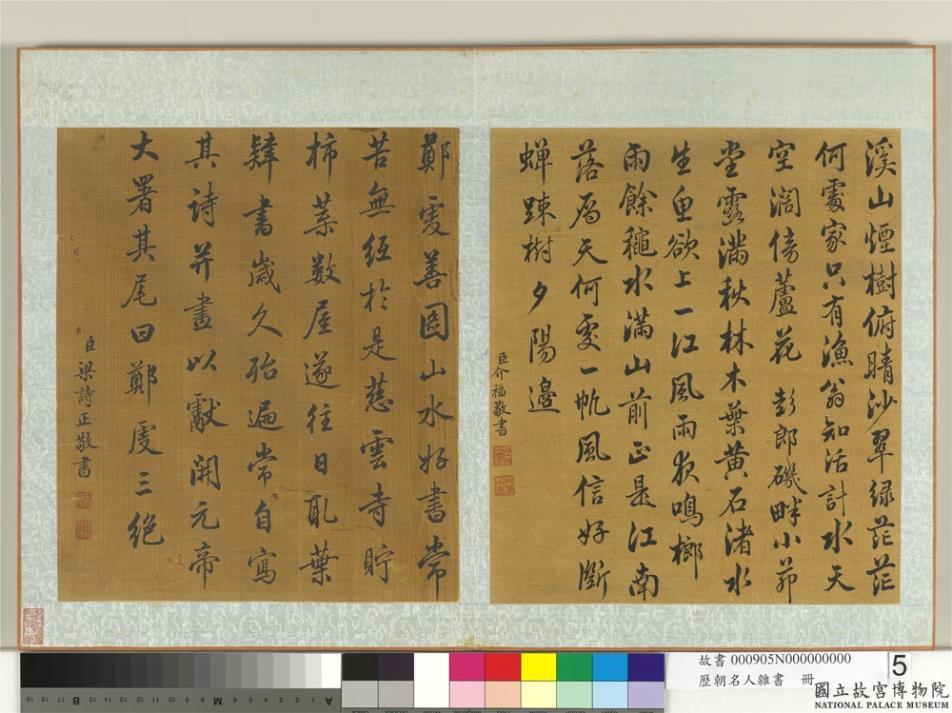 溪山煙樹俯晴沙翠緑茫茫
何處家只有漁翁知活計水天
空濶傍蘆花 彭郎磯畔小茆
堂露滿秋林木葉黃石渚水
生魚欲上一江風雨夜鳴榔
雨餘穐水滿山前正是江南
落雁天何處一帆風信好斷
蟬踈樹夕陽邊
臣介福敬書
鄭虔善圖山水好書常
苦無紙於是慈雲寺貯
柿葉數屋遂往日取葉
肄書歲久殆遍常自寫
其詩并畫以獻開元帝
大署其尾曰鄭虔三絕
臣梁詩正敬書
故書 000905N000000000
歷朝名人雜書 冊
5
國立故宮博物院
NATIONAL PALACE MUSEUM